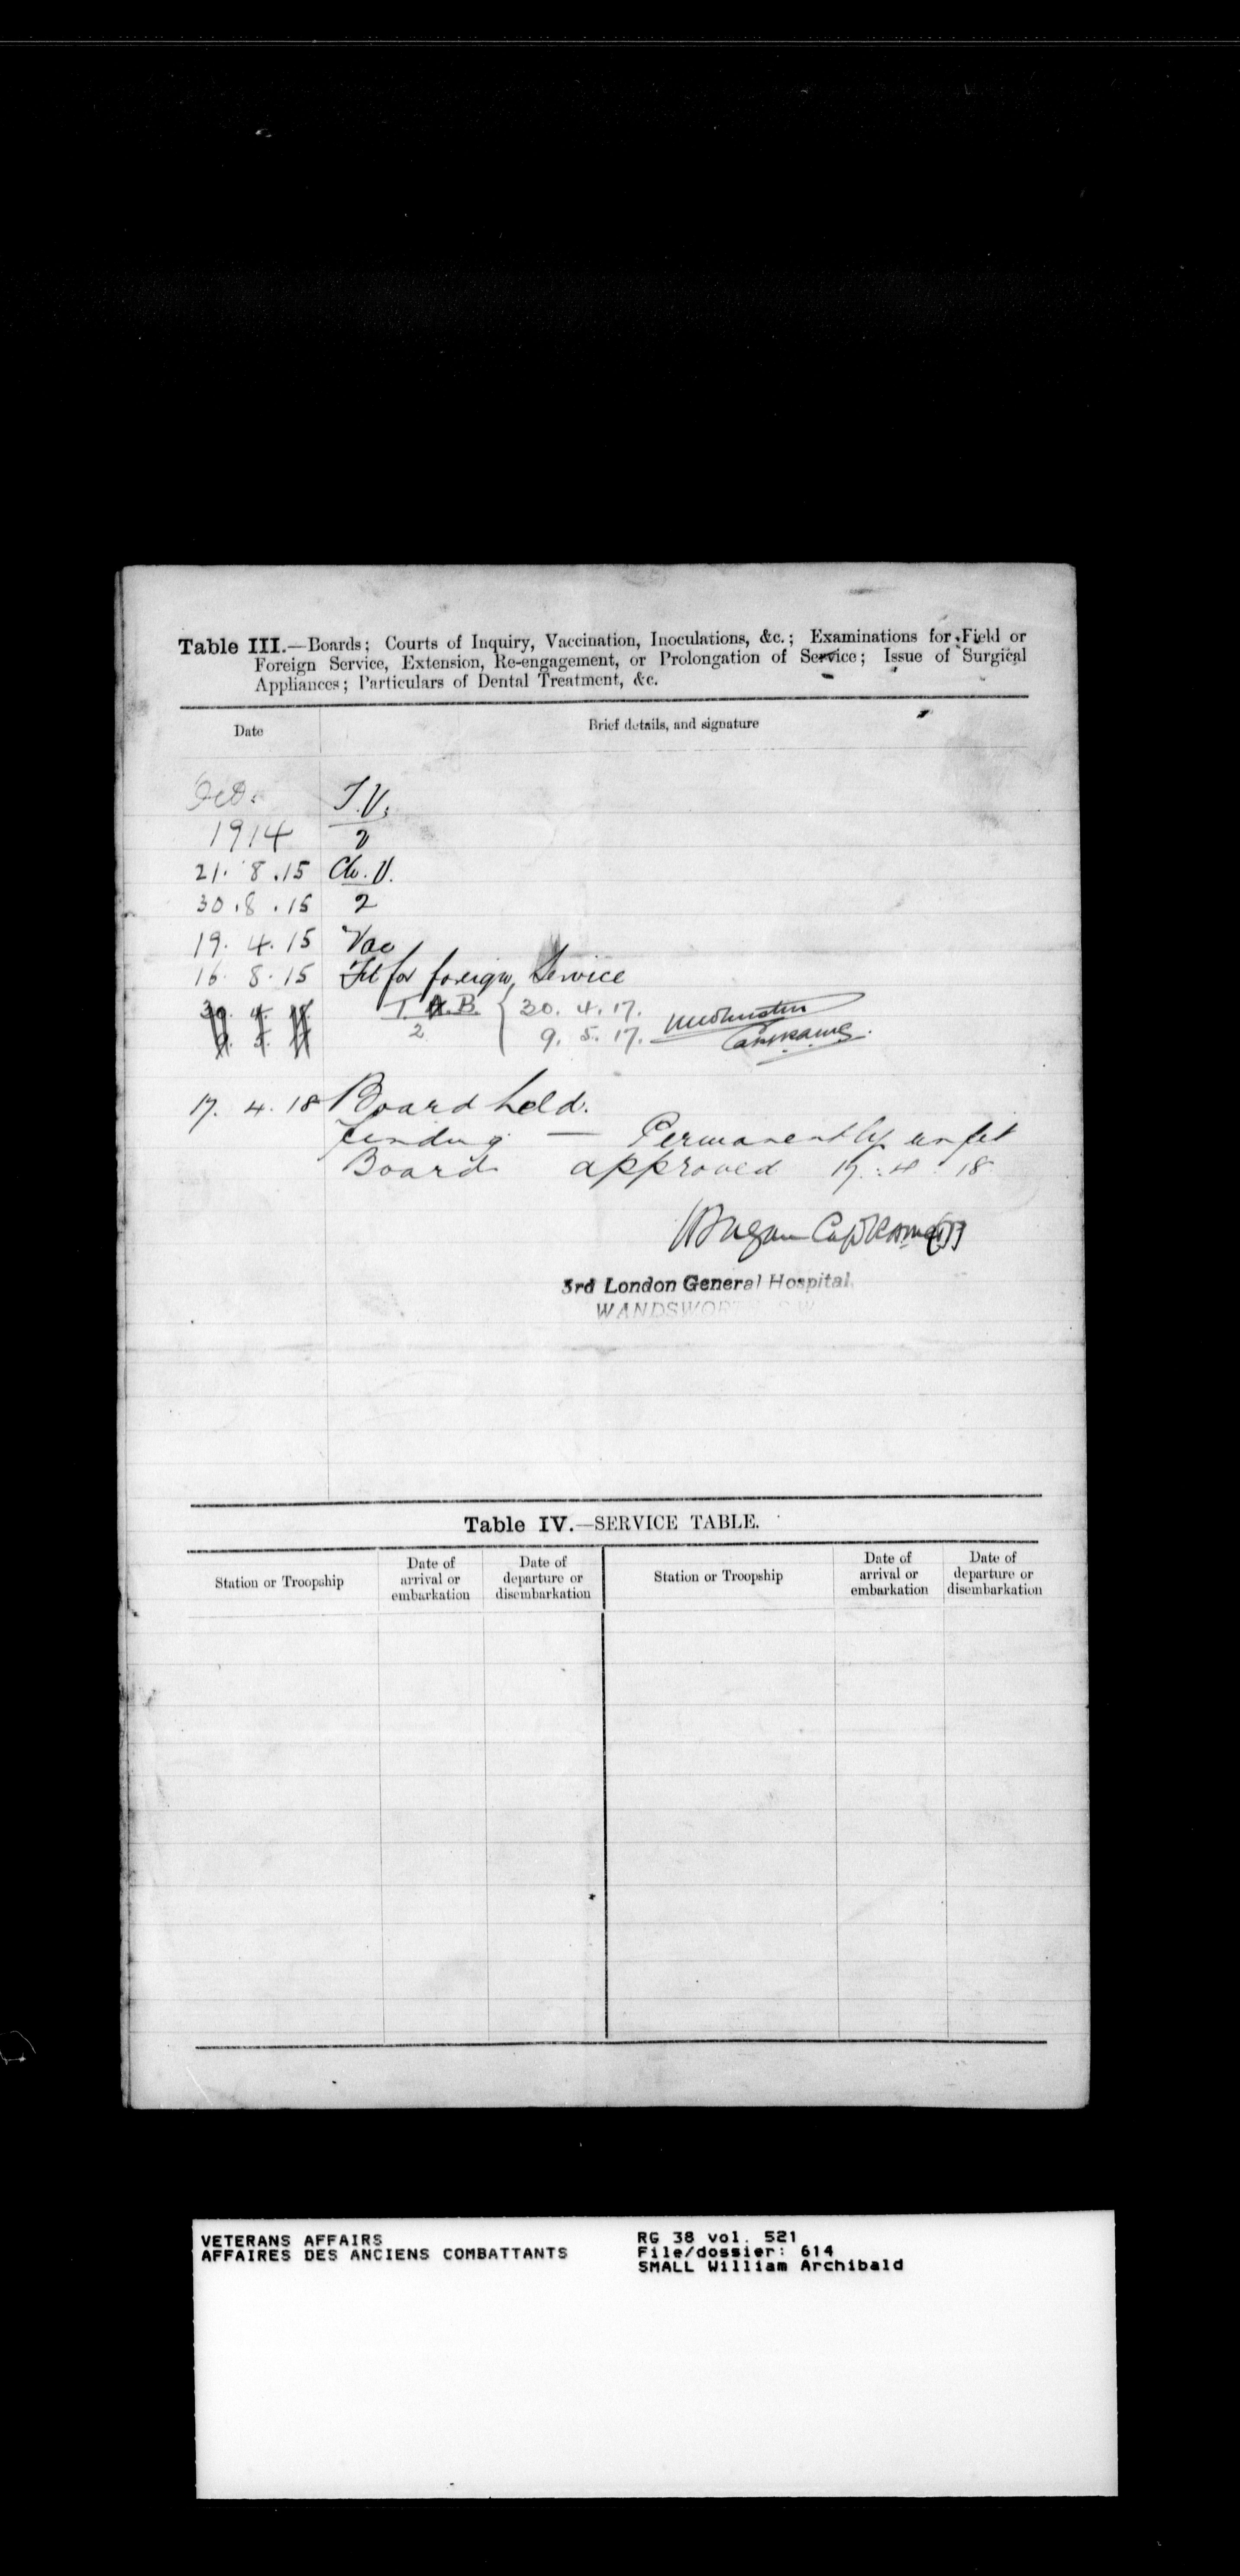 Table III.—Boards; Courts of Inquiry, Vaccination, Inoculations, &c.; Examinations for Field or
Foreign Service, Extension, Re-engagement, or Prolongation of Service; Issue of Surgical
Appliances; Particulars of Dental Treatment, &c.
Date Brief details, and signature
Oct. T.V.
1914 2
21. 8 .15 Ch. V.
30 .8 .15 2
19. 4. 15 Vac
16 8. 15 Fit for foreign Service
T.A.B. { 30. 4. 17.
2 9. 5. 17.
17. 4. 18 Board held.
Finding — Permanently unfit
Board approved 17. 4 18
Capt RAMC(T)
3rd London General Hospital
WANDSWORTH S.W.
Table IV.—SERVICE TABLE.
Station or Troopship Date of arrival or embarkation Date of departure or disembarkation Station or Troopship Date of arrival or embarkation Date of departure or disembarkation
VETERANS AFFAIRS RG 38 vol. 521
AFFAIRES DES ANCIENS COMBATTANTS File/dossier: 614
SMALL William Archibald